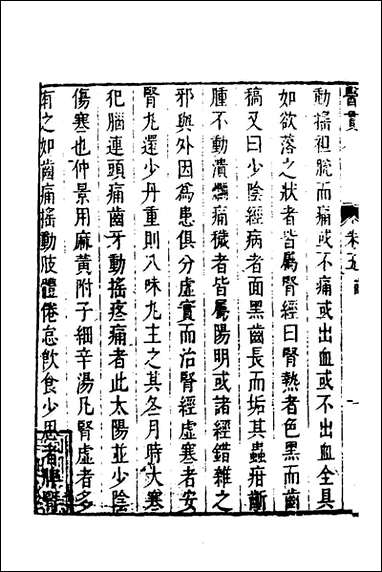 醫貫 卷五
動搖袒脫而痛或不痛或出血或不出血全具
如欲落之狀者皆屬腎經曰腎熱者色黑而齒
稿又曰少陰經病者面黑齒長而垢其蟲疳齗
腫不動潰爛痛穢者皆屬陽明或諸經錯雜之
邪與外因為患俱分虛實而治腎經虛寒者安
腎丸還少丹重則八味丸主之其冬月時大寒
犯腦連頭痛齒牙動搖疼痛者此太陽並少陰
傷寒也仲景用麻黃附子細辛湯凡腎虛者多
有之如齒痛搖動肢體倦怠飲食少思者脾腎